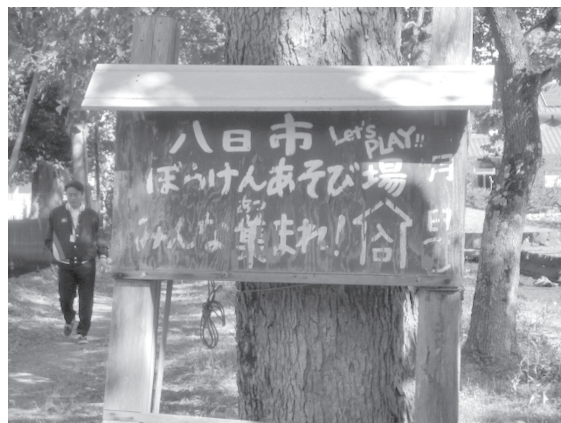 八日市 Let's PLAY!!
ぼうけんあそび場
みんな集まれ!